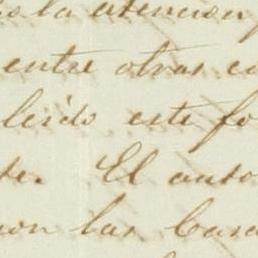 la atencion
entre otras co
leido este fo
te. El auto
con las bas